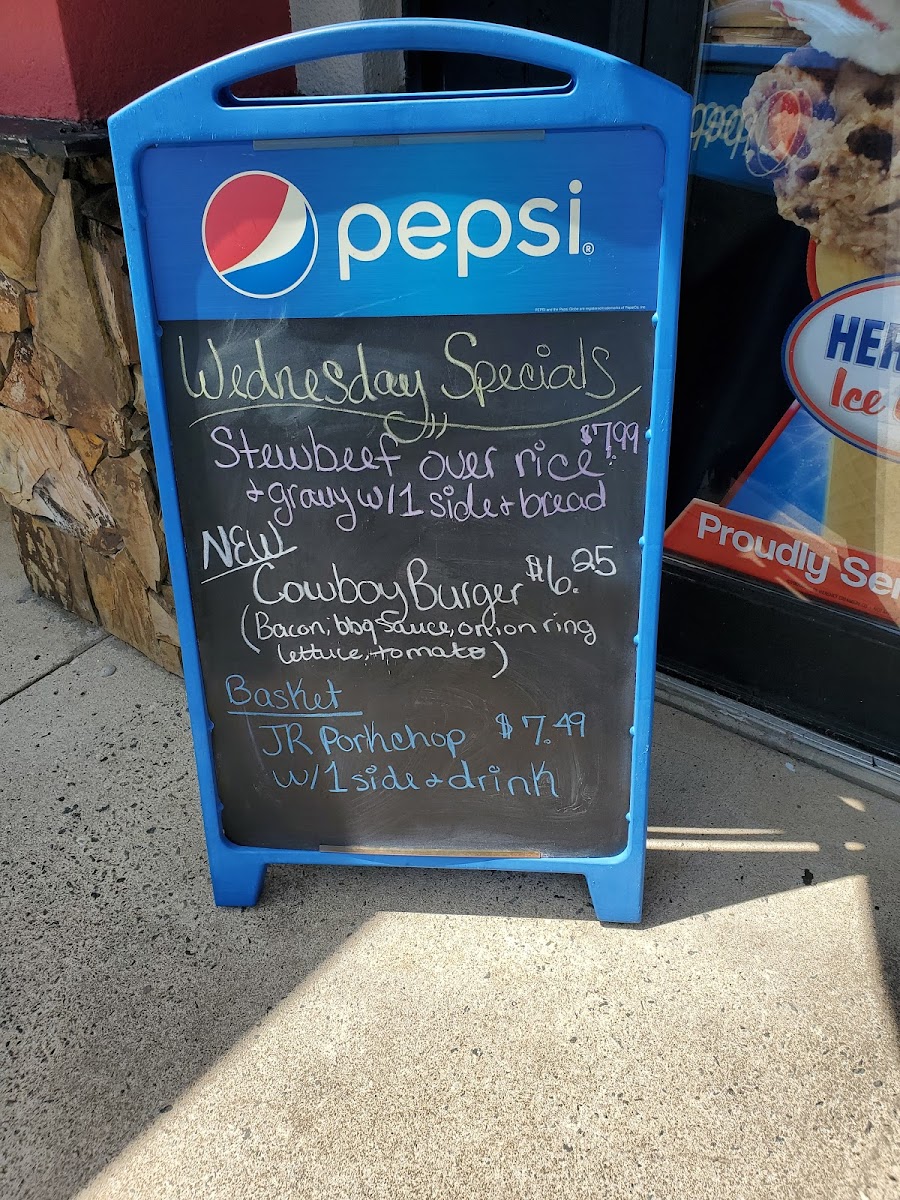 pepsi®
Wednesday Specials
Stewbeef over rice $7.99
+ gravy w/1 side + bread
NEW
Cowboy Burger $6.25
(Bacon, bbq sauce, onion ring
lettuce, tomato)
Basket
JR Porkchop $7.49
w/1 side + drink
HER
Ice
Proudly Ser